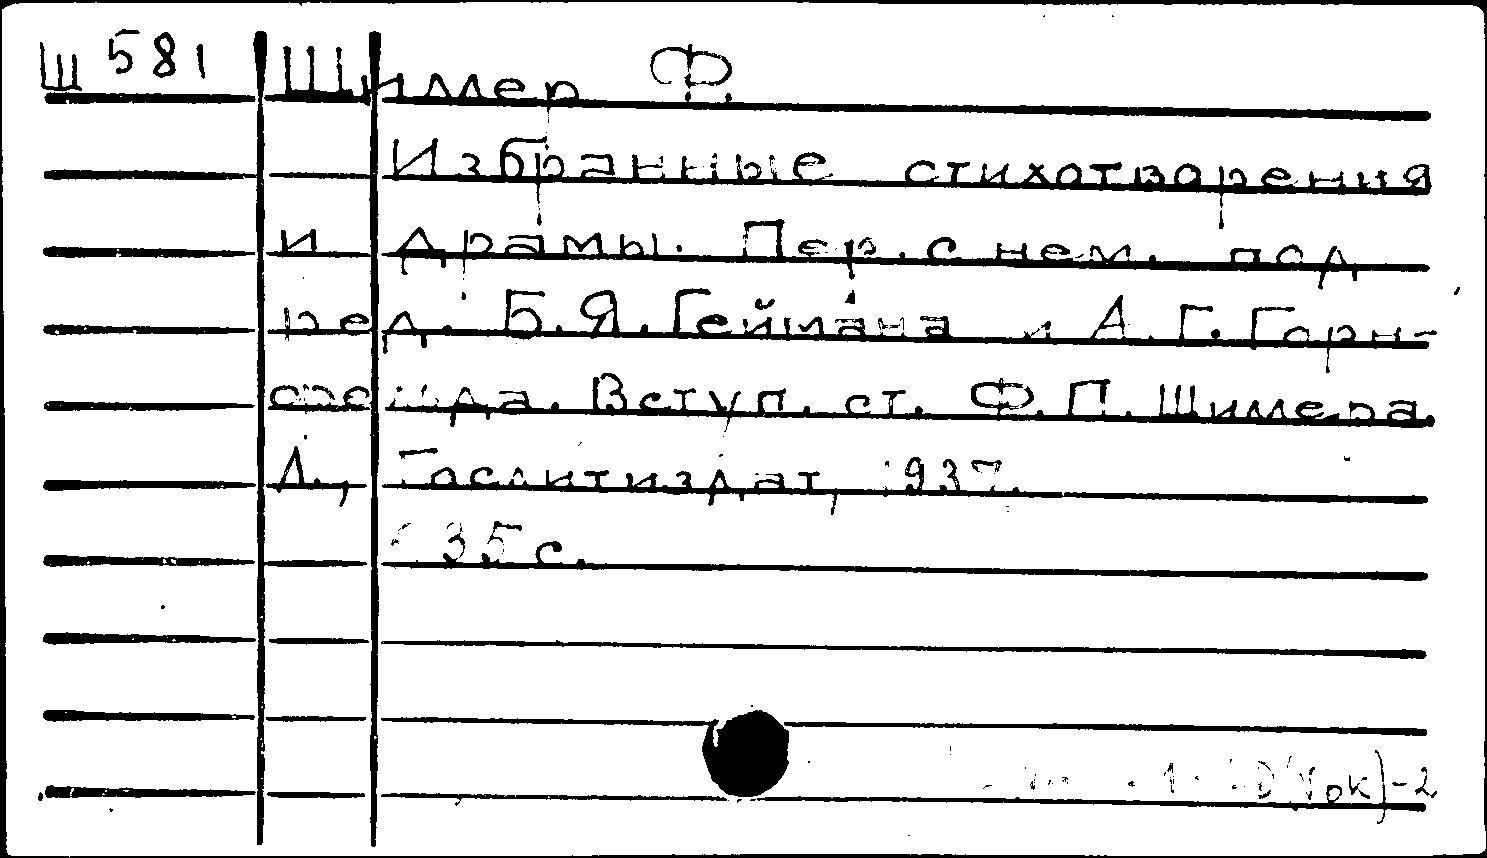 Ш 581 Шиллер Ф.
Избранные стихотворения
и драмы. Пер. с нем. под
ред. Б.Я. Геймана и А.Г. Горн-
фельда. Вступ. ст. Ф.П. Шиллера.
Л., Гослитиздат, 1937.
635с.